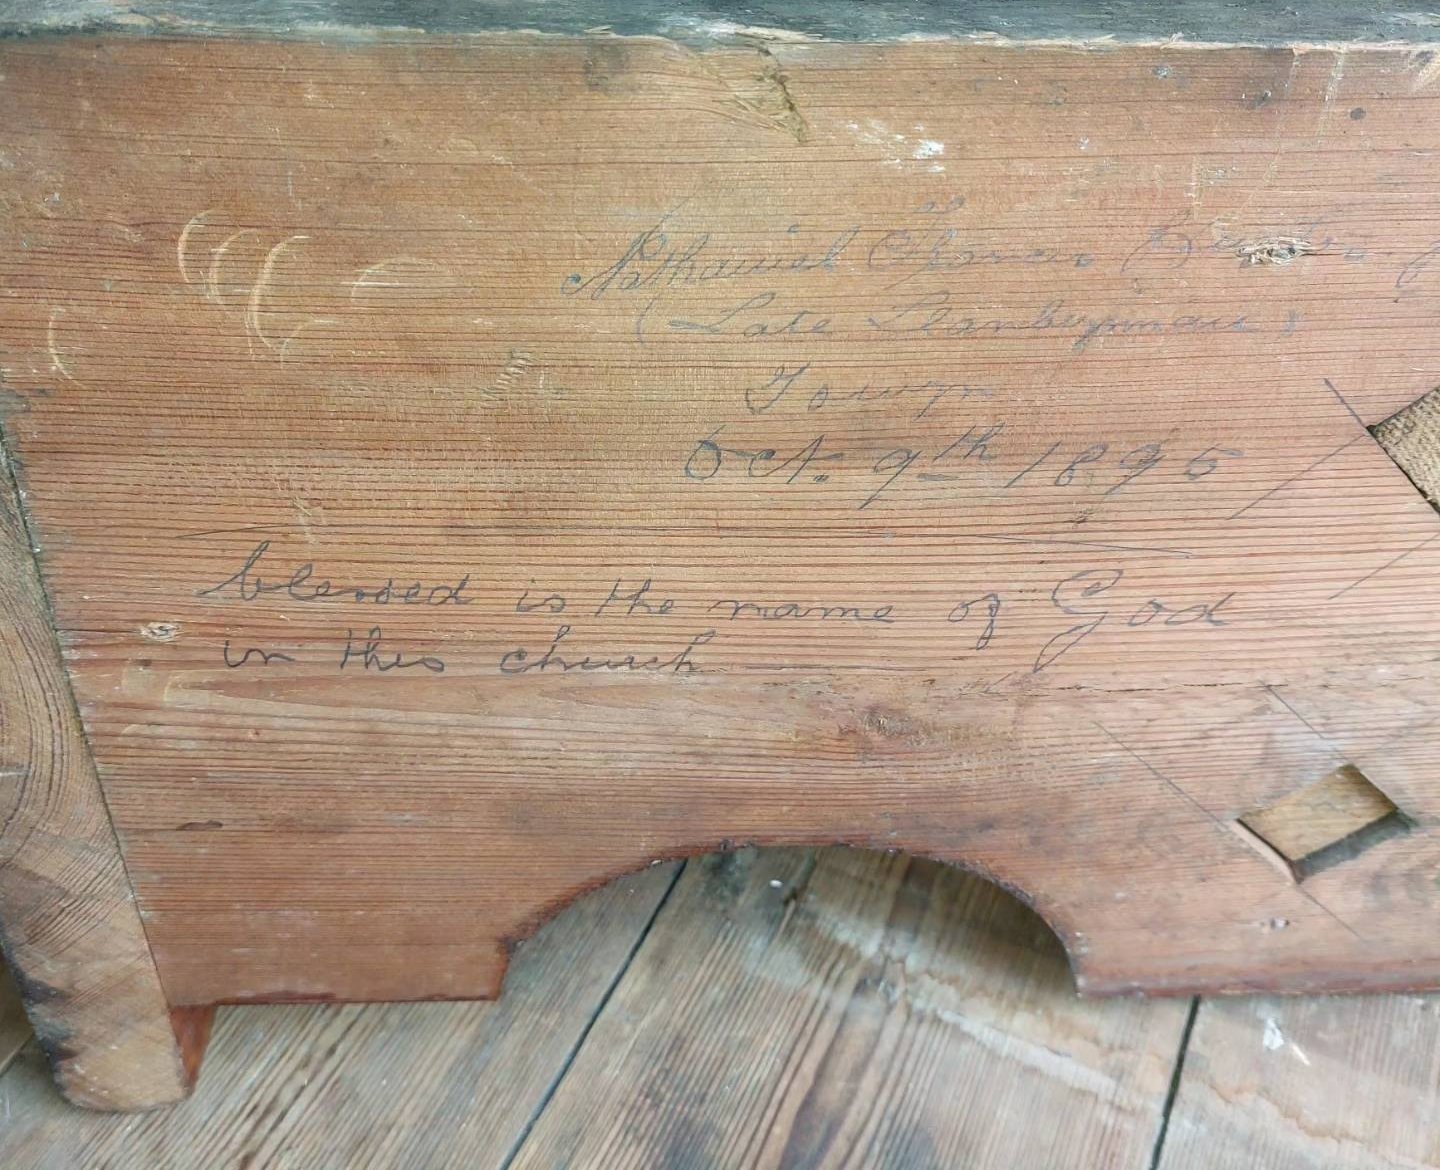 Nathaniel
(Late Llanbrynmair)
Towyn
Oct. 9th 1895
blessed is the name of God
in this church